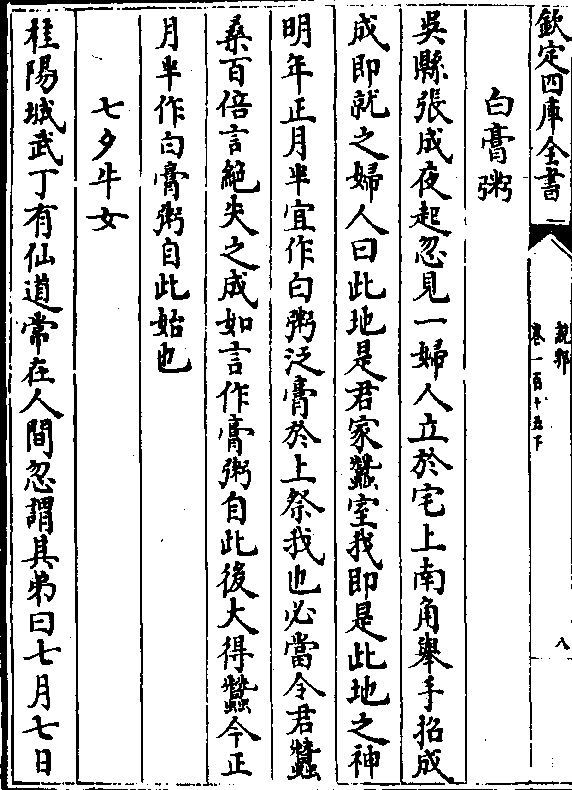 欽定四庫全書
說郛
卷一百十五下
八
白膏粥
吳縣張成夜起忽見一婦人立於宅上南角舉手招成
成即就之婦人曰此地是君家蠶室我即是此地之神
明年正月半宜作白粥泛膏於上祭我也必當令君蠶
桑百倍言絕失之成如言作膏粥自此後大得蠶今正
月半作白膏粥自此始也
七夕牛女
桂陽城武丁有仙道常在人間忽謂其弟曰七月七日